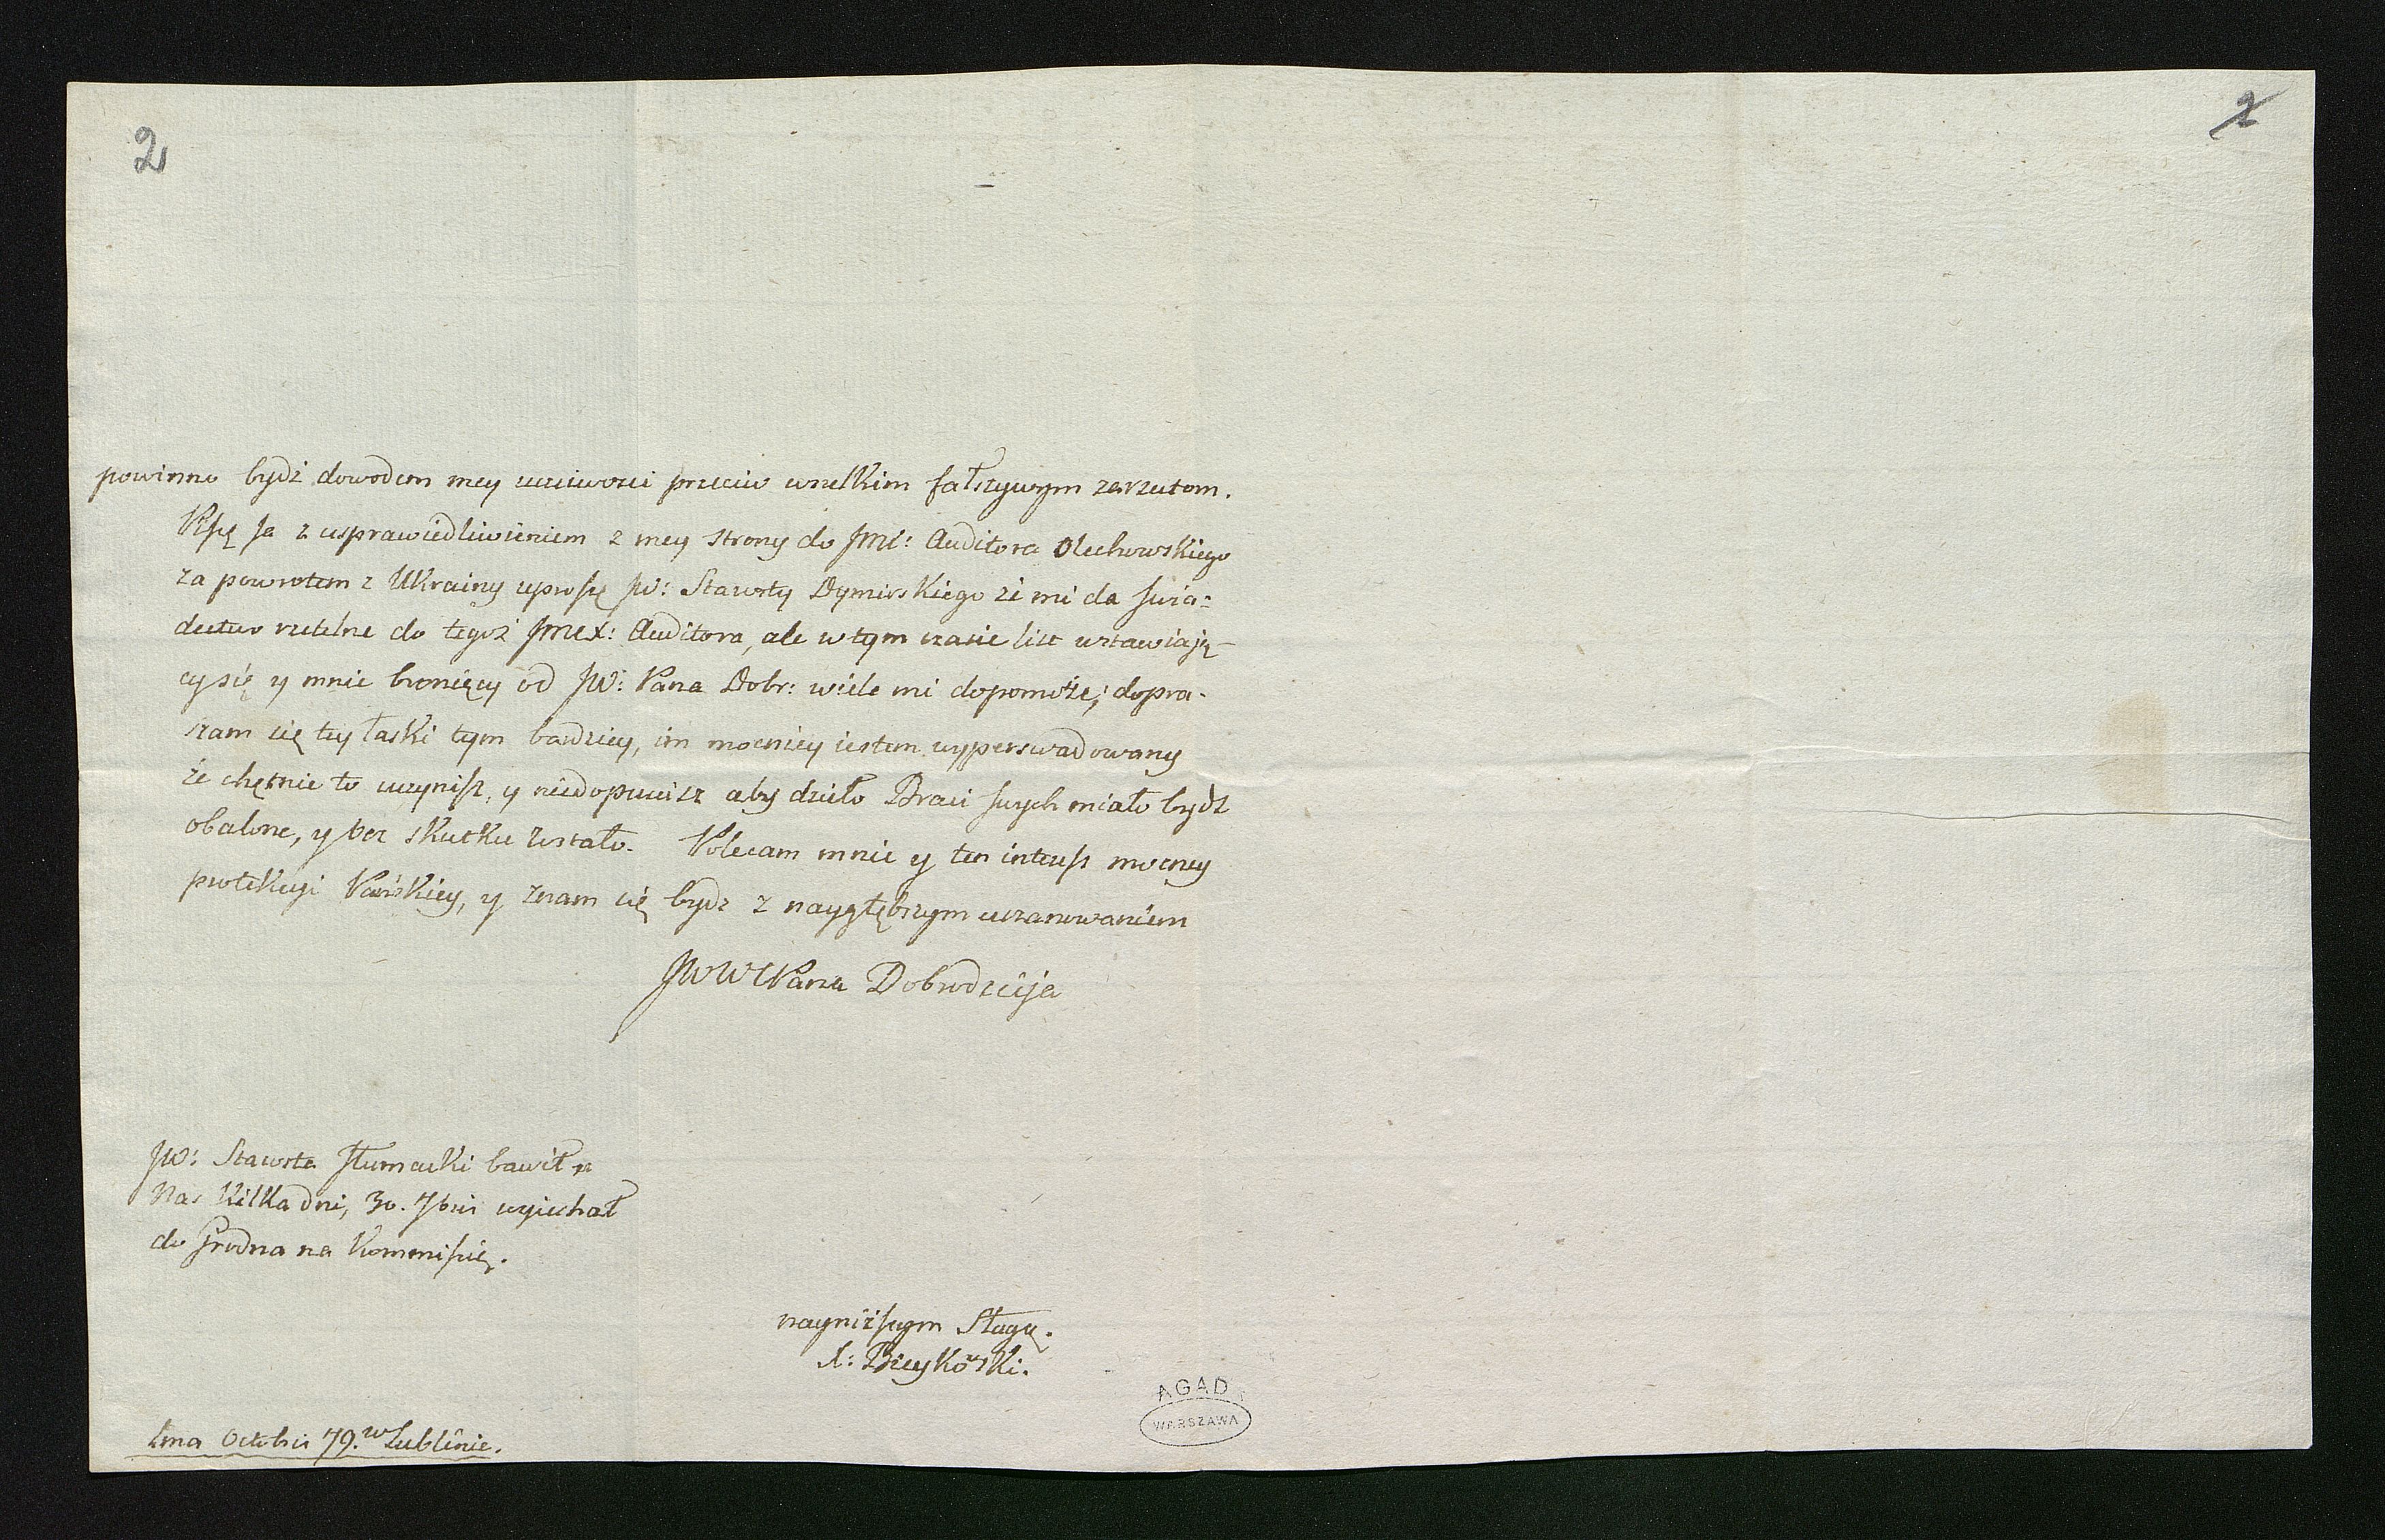 2
2
powinno bydź dowodem mey uczciwości przeciw wszelkim fałszywym zarzutom.
Piszę ja z usprawiedliwieniem z mey strony do Jmć: Auditora Olechowskiego
za powrotem z Ukrainy uproszę JW: Starosty Dymirskiego że mi da świa=
dectwo rzetelne do tegoż Jmć X: Auditora, ale w tym czasie list wstawiają-
cy się y mnie broniący od JW: Pana Dobr: wiele mi dopomoże; dopra-
szam się tey łaski tym bardziey, im mocniey iestem wyperswadowany
że chętnie to uczynisz, y niedopuscisz aby dzieło Braci swych miało bydź
obalone, y bez skutku zostało. Polecam mnie y ten interess mocney
protekcyi Pańskiey, y znam się bydz z naygłębszym uszanowaniem
JWWPana Dobrodzieja
JW: Starosta Tłumacki bawił u
Nas Kilka dni, 30. 7bris wyiechał
do Grodna na Kommissię.
nayniższym Sługą.
X: Bieykowski.
1ma Octobris 79. w Lublinie.
AGAD
WARSZAWA